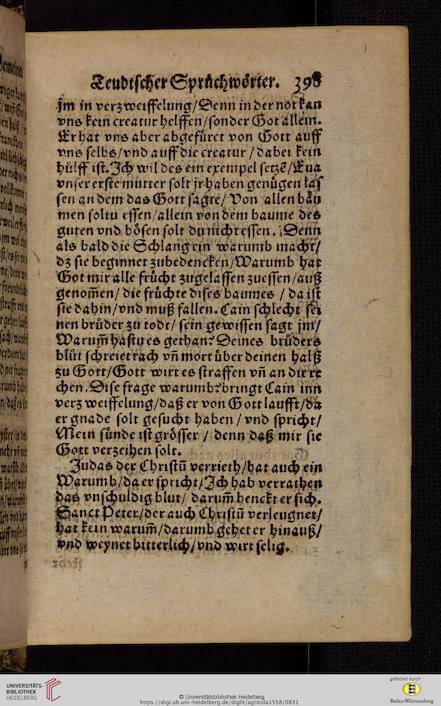 Teudtscher Sprüchwörter. 398
jm in verzweiffelung/Denn in der not kan
vns kein creatur helffen/sonder Got allein.
Er hat vns aber abgefüret von Gott auff
vns selbs/vnd auff die creatur/dabei kein
hülff ist. Ich wil des ein exempel setzē/Eua
vnser erste mutter solt jr haben genügen las
sen an dem das Gott sagte/Von allen bäu
men soltu essen/allein von dem baume des
guten vnd bösen solt du nicht essen. Denn
als bald die Schlang ein warumb macht/
dz sie beginnet zubedencken/Warumb hat
Got mir alle frücht zugelassen zuessen/auß
genom̄en/die früchte dises baumes/da ist
sie dahin/vnd muß fallen. Cain schlecht sei
nen brüder zu todt/sein gewissen sagt jm/
Warum̄ hastu es gethan? Deines brüders
blüt schreiet rach vn̄ mort über deinen halß
zu Gott/Gott wirt es straffen vn̄ an dir re
chen. Dise frage warumb? bringt Cain inn
verzweiffelung/daß er von Gott laufft/da
er gnade solt gesucht haben/vnd spricht/
Mein sünde ist grösser/denn daß mir sie
Gott verzeihen solt.
Judas der Christū verrieth/hat auch ein
Warumb/da er spricht/Ich hab verrathen
das vnschuldig blut/darum̄ henckt er sich.
Sanct Peter/der auch Christū verleugnet/
hat kein warum̄/darumb gehet er hinauß/
vnd weynet bitterlich/vnd wirt selig.
UNIVERSITÄTS-
BIBLIOTHEK
HEIDELBERG
© Universitätsbibliothek Heidelberg
https://digi.ub.uni-heidelberg.de/diglit/agricola1558/0831
gefördert durch
Baden-Württemberg